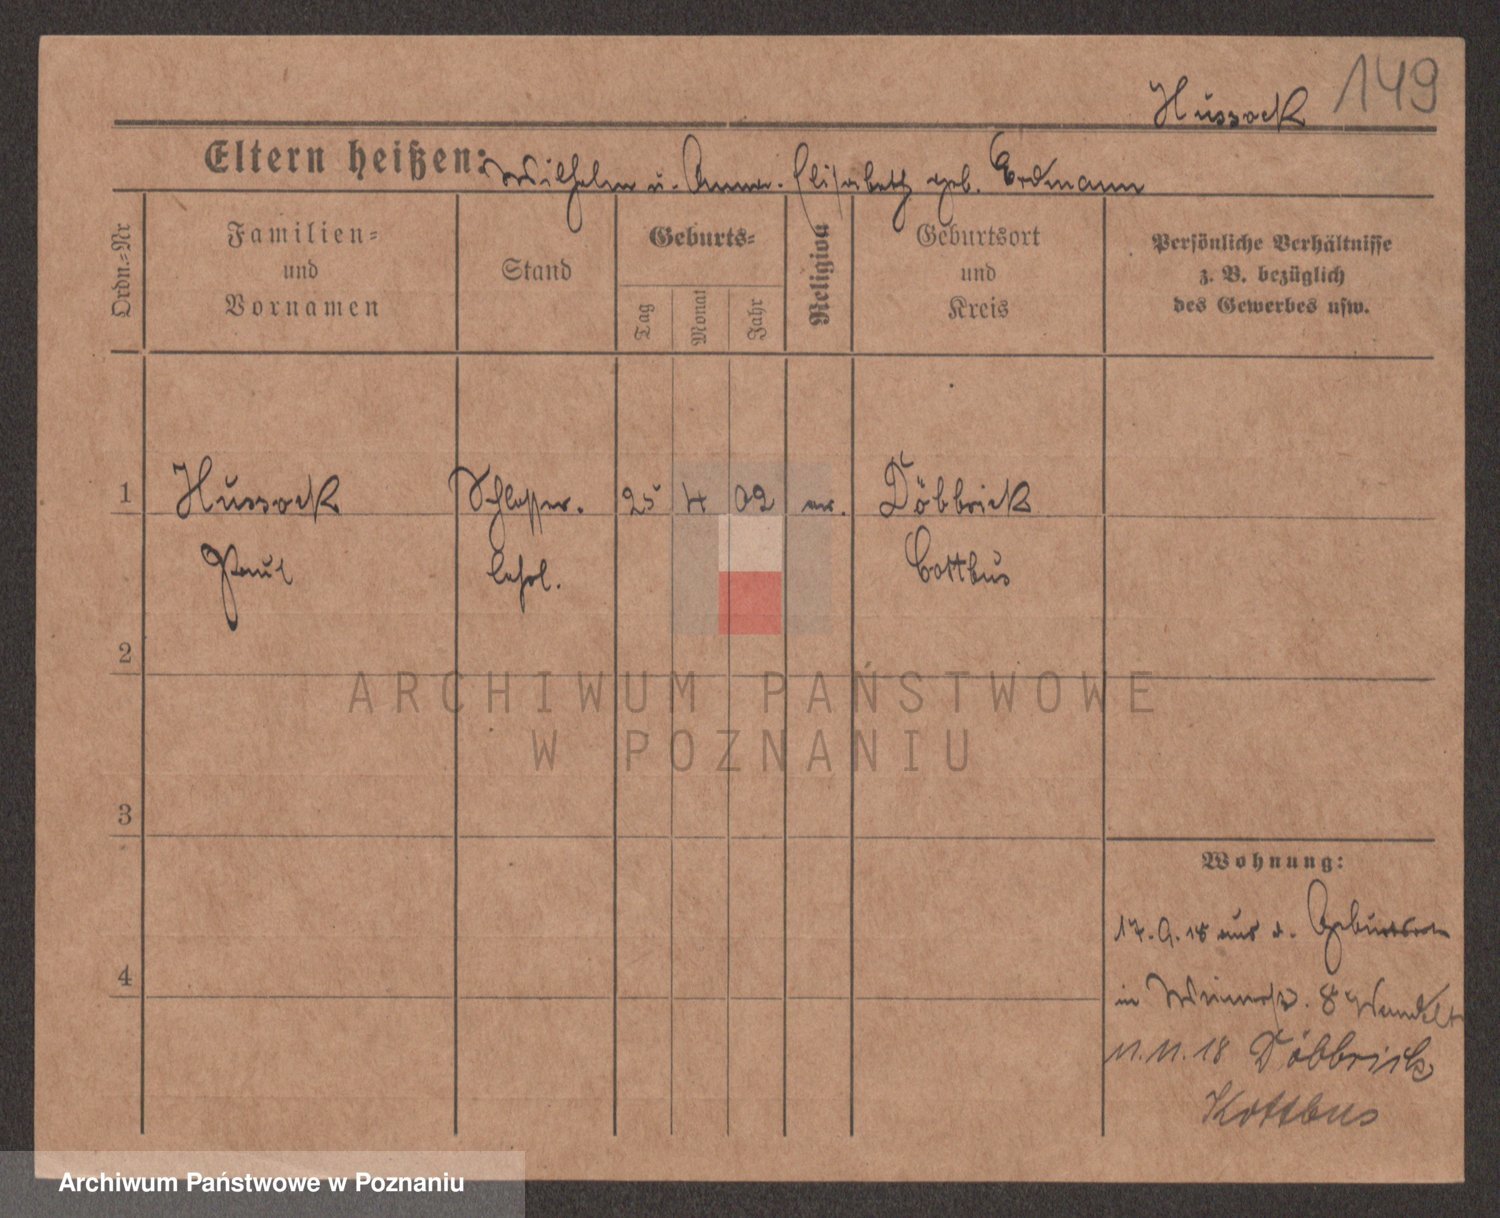 Hussock 149
Eltern heißen: Wilhelm u. Anna Elisabeth geb. Erdmann
Ordn.-Nr
Familien-
und
Vornamen
Stand
Geburts-
Tag
Monat
Jahr
Religion
Geburtsort
und
Kreis
Persönliche Verhältnisse
z. B. bezüglich
des Gewerbes usw.
1 Hussock Schlosser. 25 4 02 ev. Döbbrick
Paul Lehrl. Cottbus
2
ARCHIWUM PAŃSTWOWE
W POZNANIU
3
Wohnung:
17.9.18 aus d. Geburtsort
4
in 8
11.11.18 Döbbrick
Kottbus
Archiwum Państwowe w Poznaniu